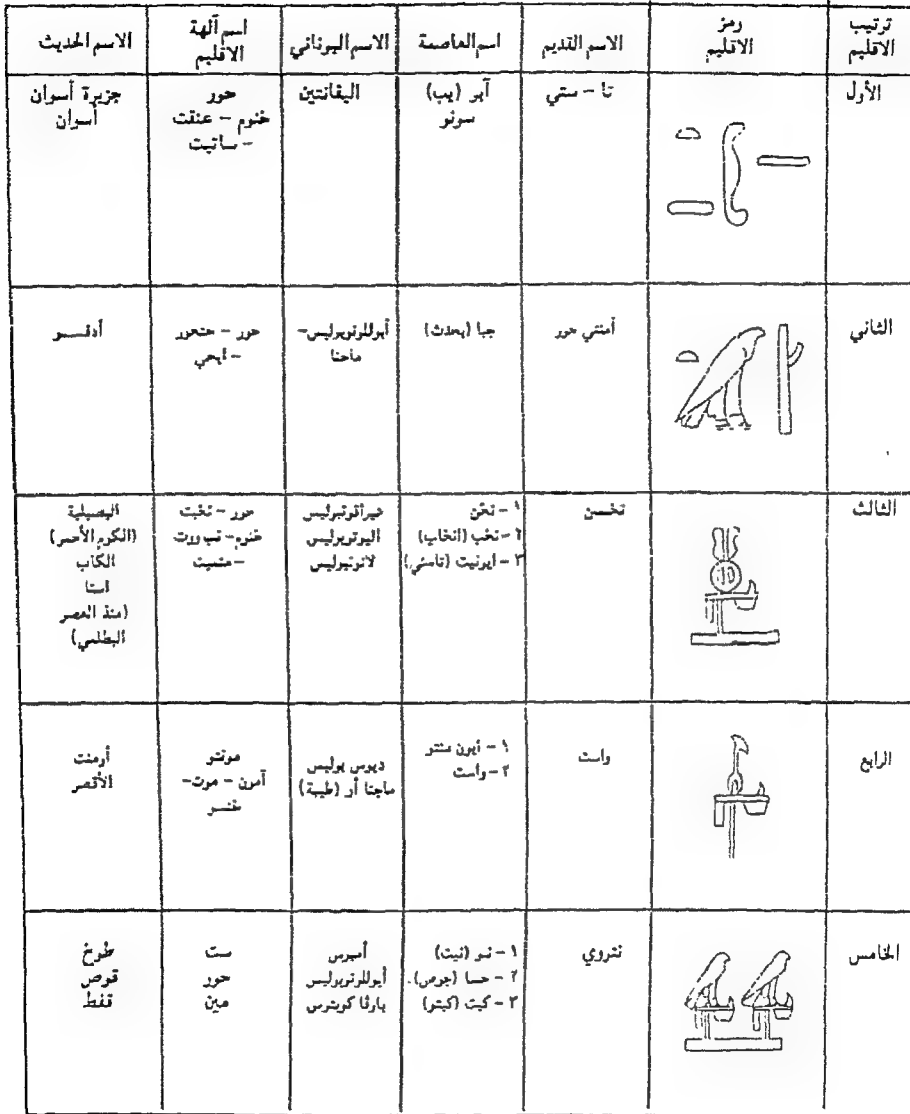 ترتيب الاقليم
رمز الاقليم
الاسم القديم
اسم العاصمة
الاسم اليوناني
اسم آلهة الاقليم
الاسم الحديث
الأول
تا - ستي
آبو (يب)
سونو
اليفانتين
حور
خنوم - عنقت
- ساتيت
جزيرة أسوان
أسوان
الثاني
أمنتي حور
جبا (بحدث)
أبوللونوبوليس-
ماجنا
حور - حتحور
- ايحي
أدفــو
الثالث
نخـن
١ - نخن
٢ - نخب (انخاب)
٣ - ايونيت (تاسني)
هيراقونبوليس
اليوتوبوليس
لاتوبوليس
حور - نخبت
خنوم - نب ووت
- منحيت
البصيلية
(الكوم الأحمر)
الكاب
اسنا
(منذ العصر
البطلمي)
الرابع
واست
١ - أيون منتو
٢ - واست
ديوس بوليس
ماجنا أو (طيبة)
مونتو
آمون - موت-
خنسو
أرمنت
الأقصر
الخامس
نتروي
١ - نبو (نبت)
٢ - حسا (جوص).
٣ - كبت (كبتو)
أمبوس
أبوللونوبوليس
بارفا كوبتوس
ست
حور
مين
طوخ
قوص
قفط